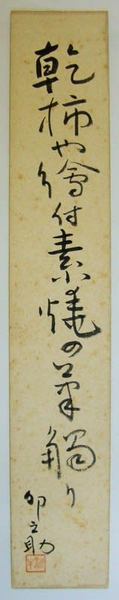 乾柿や繪付素焼の筆觸り
卯之助